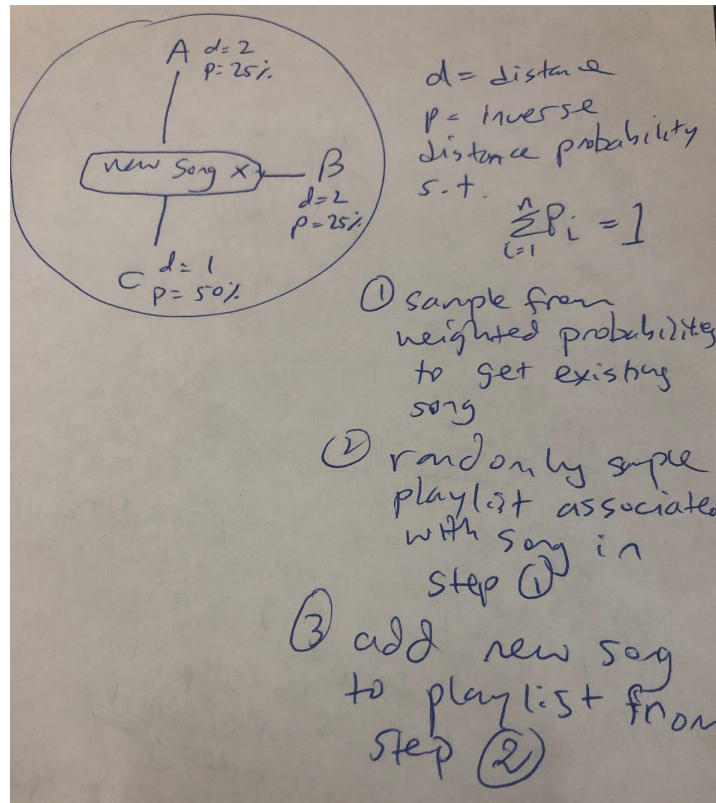 A d=2
p=25%.
new song x
B
d=2
p=25%
C d=1
p=50%
d= distance
p= inverse
distance probability
s.t.
n
∑ Pi = 1
i=1
① sample from
weighted probabilities
to get existing
song
② randomly sample
playlist associated
with song in
step ①
③ add new song
to playlist from
step ②